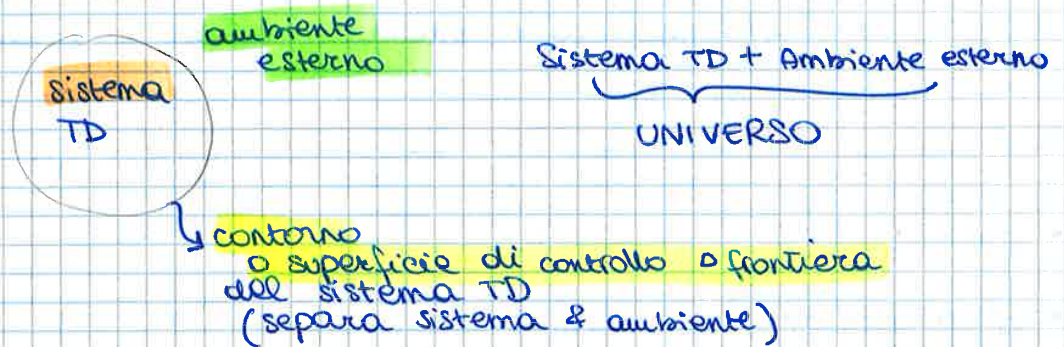 ambiente
esterno
sistema
TD
Sistema TD + Ambiente esterno
UNIVERSO
contorno
o superficie di controllo o frontiera
del sistema TD
(separa sistema & ambiente)